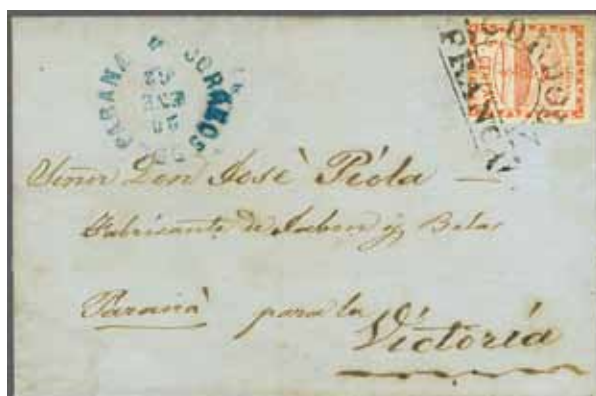 CORREOS
PARANA
FRANCA
Señor Don José Pióla
Fabricante de Jabon y Belas
Paranà para la
Victoria